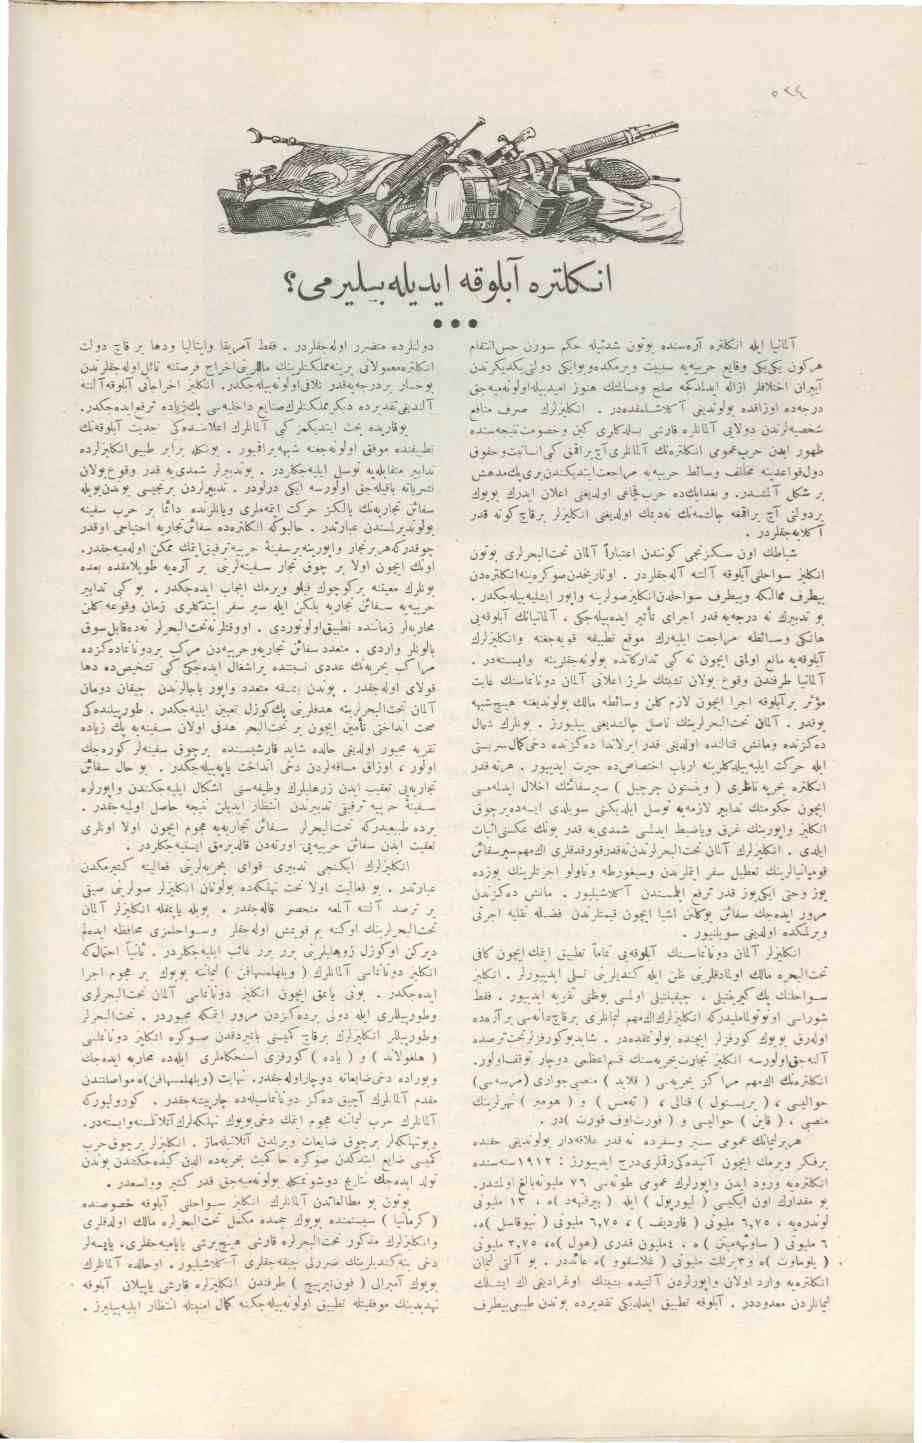 ٥٢٤
انكلتره آبلوقه ايديله‌بيليرمی؟
آلمانيا ايله انكلتره آره‌سنده بوتون شدتيله حكم سورن حس‌انتقام
هركون يكی‌يكی وقايع حربيه‌يه سبيت ويرمكده‌وبوايكی دولتی‌يكديكرندن
آييران اختلافلر ازاله ايدلدكجه صلح ومسالمك هنوز اميد‌يله‌اولونه‌ميه‌جق
درجه‌ده اوزاقده بولونديغی آكلاشلمقده‌در . انكليزلرك صرف منافع
شخصيه‌لرندن دولايی آلمانلره قارشی بسله‌دكلری كين وخصومت‌نتيجه‌سنده
ظهور ايدن حرب‌عمومی انكلتره‌نك آلمانلری‌آچ‌براقمق كبی‌انسانيت‌وحقوق
دول‌قواعدينه مخالف وسائط حربيه‌يه مراجعت‌ايتديكندن‌بری‌پك‌مدهش
بر شكل آلمشدر. و بعدايك‌ده حرب‌قحافی اولديغی اعلان ايدرك بويوك
بردولتی آچ براقمغه چاليشمه‌نك نه‌ديمك اولديغی انكليزلر برقاچ‌كونه قدر
آكلايه‌جقلردر .
شباطك اون سكزنجی كوتندن اعتباراً آلمان تحت‌البحرلری بوتون
انكليز سواحلنی‌آبلوقه آلتنه آله‌جقلردر . اوتاريخدن‌صوكره‌ينه‌انكلتره‌دن
بيطرف ممالكه وبيطرف سواحلدن‌انكليزصولرينه واپور ايشليه‌بيله‌جكدر.
بو تدبيرك نه درجه‌يه قدر اجرای تأثير ايده‌بيله‌جكی ، آلمانيانك آبلوقه‌يی
هانكی وسائطله مراجعت ايليه‌رك موقع تطبيقه قويه‌جغنه وانكليزلرك
آبلوقه‌يه مانع اولمق ايچون نه كبی تدارككانده بولونه‌جقلرينه وابسته‌در.
آلمانيا طرفندن وقوع بولان تشبثك طرز اعلانی آلمان دونانماسنك غايت
مؤثر برآبلوقه اجرا ايچون لازم كلن وسائطه مالك بولونديغنه هيچ‌شبهه
يوقدر . آلمان تحت‌البحرلرينك ناصل چالشديغنی بيليورز . بونلرك شمال
ده‌كزنده ومانش قنالنده اولديغی قدر ايرلاندا ده‌كزنده دخی‌كمال‌سربستی
ايله حركت ايليه‌بيلدكلرينه ارباب اختصاص‌ده حيرت ايدييور. هرنه‌قدر
انكلتره بحريه ناظری ( وينستون چرچيل ) سيرسفائنك اخلال ايدلممسی
ايچون حكومتك تدابير لازمه‌يه توسل ايلديكنی سويلدی ايسه‌ده‌برچوق
انكليز واپورينك غرق وياضبط ايدلمسی شمدی‌يه قدر بونك عكسنی‌اثبات
ايلدی . انكليزلرك آلمان تحت‌البحرلرندن‌نه‌قدرقورقدقلری اك‌مهم‌سيرسفائن
قومپانيالرينك تعطيل سفر ايتملرندن وسيغورطه وناولو اجرتلرينك يوزده
يوز وحتی ايكی‌يوز قدر ترفع ايلمسندن آكلاشيليور . مانش ده‌كزندن
مرور ايده‌جك سفائن يوكلانن اشيا ايچون قيمتلرندن فضله نقليه اجرتی
ويرلمكده اولديغی سويلنيور .
انكليزلر آلمان دونانماسنك آبلوقه‌يی تماماً تطبيق ايتمك ايچون كافی
تحت‌البحره مالك اولمادقلرينی ظن ايله كنديلرينی تسلی ايدييورلر . انكليز
سواحلنك پك‌كيرينتيلی ، چيقينتيلی اولمسی بوظنی تقريه ايدييور . فقط
شوراسی اونوتولماملیدركه انكليزلرك‌اك‌مهم ليمانلری برقاچ‌دانه‌سی برآره‌ده
اوله‌رق بويوك كورفزلر ايچنده بولونقده‌در. شايدبوكورفزلرتحت‌ترصده
آلنه‌جق‌اولورسه انكليز تجارت‌بحريه‌سنك قسم‌اعظمی دوچار توقف‌اولور.
انكلتره‌نك اك‌مهم مراكز بحريه‌سی ( قلايد ) منصبی‌جواری (مرسه‌سی)
حواليسی ، ( بريستول ) قنالی ، ( تمس ) و ( هومبر ) نهرلرينك
منصبی ، ( تاين ) حواليسی و ( فورت‌اوف فورت )در .
هربرليمانك عمومی سير وسفرده نه قدر علاقه‌دار بولونديغی حقنده
برفكر ويرمك ايچون آتيده‌كی‌رقملری‌درج ايدييورز : ١٩١٢سنه‌سنده
انكلتره‌يه ورود ايدن واپورلرك عمومی طونه‌سی ٧٦ مليونه‌بالغ اولمشدر.
بو مقدارك اون ايكيسی ( ليورپول ) ايله ( بيرقنهد )ه ، ١٣ مليونی
لوندره‌يه ، ٦,٧٥ مليونی ( قارديف ) ، ٦,٧٥ مليونی ( نيوقاسل )ه،
٦ مليونی ( ساوتهمپتن )ه ، ٤مليون قدری (هول )ه، ٣,٧٥ مليونی
( پلوماوت )ه و٣بوثلث مليونی ( غلاسقوو )ه عائددر. بو آلتی ليمان
انكلتره‌يه وارد اولان واپورلردن آلتيده بشينك اوغراديغی اك ايشلك
ليمانلردن معدوددر . آبلوقه تطبيق ايدلديكی تقديرده بوندن طبيعی‌بيطرف
دولتلرده متضرر اوله‌جقلردر . فقط آمريقا وايتاليا ودها بر قاچ دولت
انكلتره‌معمولاتی يرينه‌مملكتلرينك ماللرينی‌اخراج فرصتنه نائل‌اوله‌جقلرندن
بوخسار بردرجه‌يه‌قدر تلافی‌اولونه‌بيله‌جكدر. انكليز اخراجاتی آبلوقه‌آلتنه
آلنديغی‌تقديرده ديكرمملكتلرك‌صنايع داخليه‌سی پك‌زياده ترفع‌ايده‌جكدر.
يوقاريده بحث ايتديكمز كبی آلمانلرك اعلاننده‌كی جديت آبلوقه‌نك
تطبيقنده موفق اولونه‌جغنه شبهه‌براقميور . بونكله برابر طبيعی‌انكليزلرده
تدابير متقابله‌يه توسل ايليه‌جكلردر . بوتدبيرلر شمدی‌يه قدر وقوع‌بولان
نشرياته باقيله‌جق اولورسه ايكی درلودر . تدبيرلردن برنجيسی بوندن‌بويله
سفائن تجاريه‌نك يالكز حركت ايتمه‌ملری ويانلرنده دائما بر حرب سفينه
بولوندیرلمسندن عبارتدر . حالبوكه انكلتره‌ده سفائن‌تجاريه احتياجی اوقدر
چوقدركه‌هربرتجار واپورينه‌برسفينهٔ حربيه‌ترفيق‌ايتمك ممكن اوله‌ميه‌جقدر.
اونك ايچون اولا بر چوق تجار سفينه‌لرينی بر آره‌يه طوپلامقده بعده
بونلرك معيتنه بركوچوك فيلو ويرمك ايجاب ايده‌جكدر. بو كبی تدابير
حربيه‌يه سفائن تجاريه يلكن ايله سير سفر ايتدكلری زمان وقوعه‌كلن
محاربه‌لر زماننده تطبيق‌اولونوردی . اووقتلرنه‌تحت‌البحرلر نه‌ده‌قابل‌سوق
بالونلر واردی . متعدد سفائن تجاريه‌وحربيه‌دن مركب بردونانماده‌كزده
مراكب بحريه‌نك عددی نسبتنده براشغال ايده‌جكی كبی تشخيص‌ده دها
قولای اوله‌جقدر . بوندن بشقه متعدد واپور باجالرندن چيقان دومان
آلمان تحت‌البحرلرينه هدفلرينی پك‌كوزل تعيين ايليه‌جكدر. طورپيلنده‌كی
صحت انداختی تأمين ايچون بر تحت‌البحر هدفی اولان سفينه‌يه پك زياده
تقربه مجبور اولديغی حالده شايد قارشيسنده برچوق سفينه‌لر كوره‌جك
اولور ، اوزاق مسافه‌لردن دخی انداخت ياپه‌بيله‌جكدر . بو حال سفائن
تجاريه‌يی تعقيب ايدن زرهليلرك وظيفه‌سنی اشكال ايليه‌جكندن واپورلره
سفينهٔ حربيه ترفيقی تدبيرندن انتظار ايديلن نتيجه حاصل اولميه‌جقدر .
برده طبيعيدركه تحت‌البحرلر سفائن تجاريه‌يه هجوم ايچون اولا اونلری
تعقيب ايدن سفائن حربيه‌يی اورته‌دن قالديرمق ايسته‌يه‌جكلردر .
انكليزلرك ايكنجی تدبيری قوای بحريه‌لرينی فعاليته كتيرمكدن
عبارتدر . بو فعاليت اولا تحت تهلكه‌ده بولونان انكليز صولرينی صيقی
بر ترصد آلتنه آلمغه منحصر قاله‌جقدر . بويله ياپمقله انكليزلر آلمان
تحت‌البحرلرينك اوكنه يم قويمش اوله‌جقلر وسواحلمزی محافظه ايده‌لم
ديركن اوكوزل زرهليلرينی برر برر غائب ايليه‌جكلردر . ثانياً احتمال‌كه
انكليز دونانماسی آلمانلرك ( ويلهلمسهافن ) ليماننه بويوك بر هجوم اجرا
ايده‌جكدر. بونی ياپمق ايچون انكليز دونانماسی آلمان تحت‌البحرلری
وطورپيللری ايله دولی برده‌كزدن مرور ايتمكه مجبوردر . تحت‌البحرلر
وطورپيللر انكليزلرك برقاچ كميسنی باتيردقدن صوكره انكليز دونانماسی
( هلغولاند ) و ( ياده ) كورفزی استحكاملری ايله‌ده محاربه ايده‌جك
وبوراده دخی‌ضايعاته دوچاراوله‌جقدر. نهايت (ويلهلمسهافن)ه‌مواصلتندن
مقدم آلمانلرك آچيق ده‌كز دونانماسيله‌ده چارپيشه‌جقدر . كورولويوركه
آلمانلرك حرب ليماننه هجوم ايتمك دخی‌بويوك تهلكه‌لرك‌آتلاتلمسنه‌وابسته‌در.
وبوتهلكه‌لر برچوق ضايعات ويرلمدن آتلاتيله‌ماز. انكليزلر برچوق‌حرب
كميسی ضايع ايتدكدن صوكره حاكميت بحريه‌ده الدن كيده‌جكندن بوندن
تولد ايده‌جك نتايج دوشونمكله بولونه‌ميه‌جق قدر كثير وواسعدر.
بوتون بو مطالعاتدن آلمانلرك انكليز سواحلنی آبلوقه خصوصنده
( كرمانيا ) سيستمنده بويوك حجمده مكمل تحت‌البحرلره مالك اولدقلری
وانكليزلرك مذكور تحت‌البحرلره قارشی هيچ‌برشی ياپاميه‌جقلری، ياپسه‌لر
دخی ينه‌كنديلرينك ضررلی چيقه‌جقلری آكلاشيليور. اوحالده آلمانلرك
بويوك آميرالی ( فون‌تيرپيچ ) طرفندن انكليزلره قارشی ياپيلان آبلوقه
تهديدينك موفقيتله تطبيق اولونه‌بيله‌جكنه كمال امنيتله انتظار ايليه‌بيليرز .